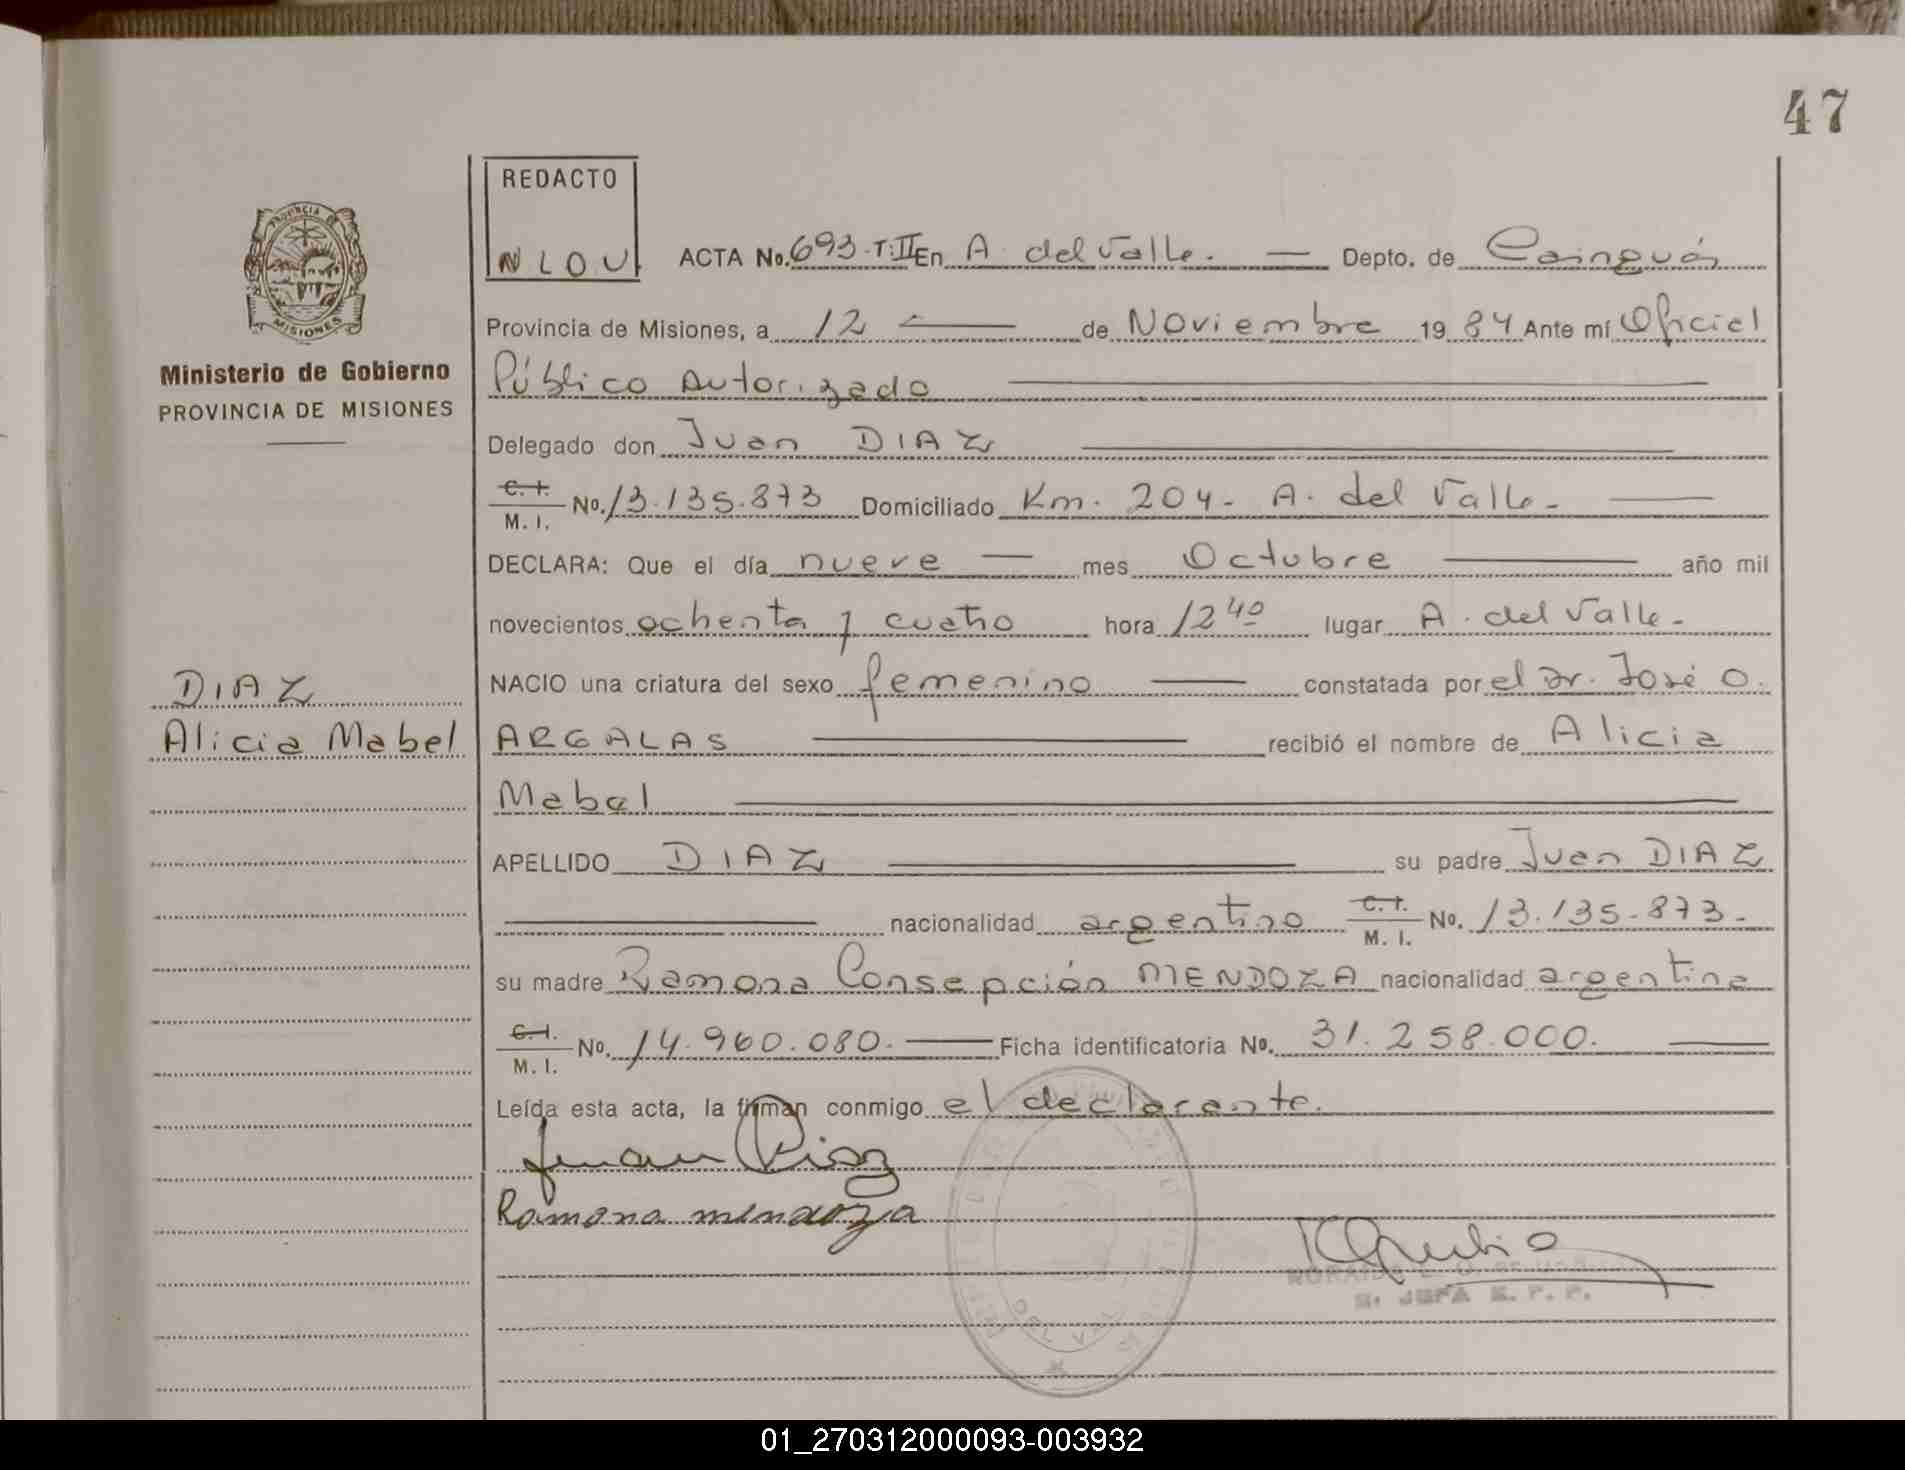 47
REDACTO
N L O U
PROVINCIA DE
MISIONES
Ministerio de Gobierno
PROVINCIA DE MISIONES
ACTA No. 693-T:II En A. del Valle. — Depto. de Cainguás
Provincia de Misiones, a 12 — de Noviembre 19 84 Ante mí Oficial
Público Autorizado —
Delegado don Juan DIAZ —
C. I. M. I. No. 13.135.873 Domiciliado Km. 204- A. del Valle- —
DECLARA: Que el día nueve — mes Octubre — año mil
novecientos ochenta y cuatro hora 12 40 lugar A. del Valle-
NACIO una criatura del sexo femenino — constatada por el Dr. José O.
DIAZ
Alicia Mabel
ARGALAS — recibió el nombre de Alicia
Mabel —
APELLIDO DIAZ — su padre Juan DIAZ
— nacionalidad argentino C. I. M. I. No. 13.135-873-
su madre Ramona Consepción MENDOZA nacionalidad argentina
C. I. M. I. No. 14.960.080. — Ficha identificatoria No. 31.258.000. —
Leída esta acta, la firman conmigo el declarante.
Juan Diaz
Ramona mendoza
Sr JEFA R. P. P.
01_270312000093-003932